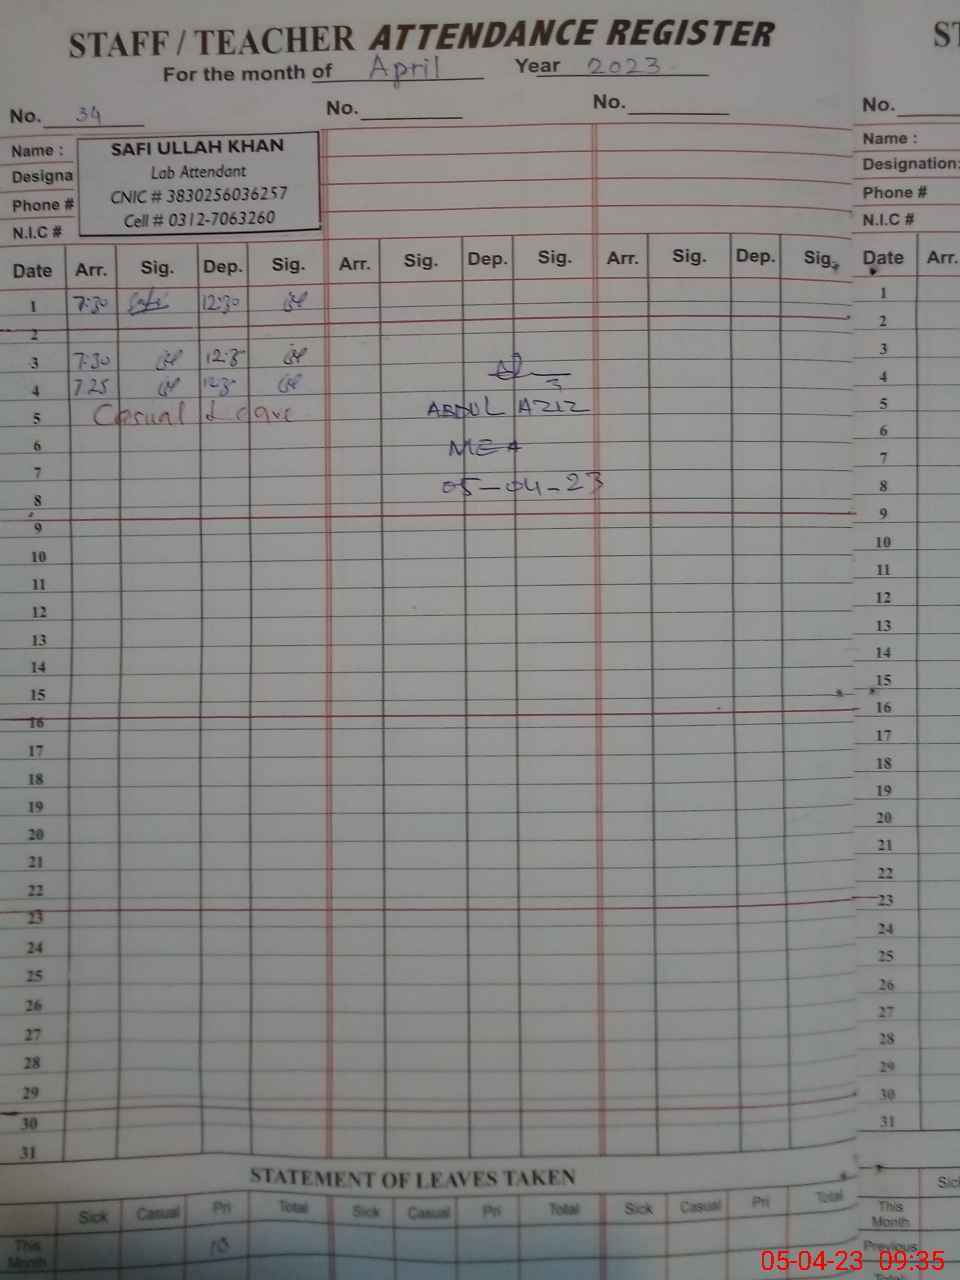 STAFF / TEACHER ATTENDANCE REGISTER
For the month of April Year 2023
No. 34 No. No.
Name : SAFI ULLAH KHAN
Designa Lab Attendant
Phone # CNIC # 3830256036257
N.I.C # Cell # 0312-7063260
Date Arr. Sig. Dep. Sig. Arr. Sig. Dep. Sig. Arr. Sig. Dep. Sig.
1 7:30 12:30
2
3 7:30
4 7.25
5 Casual Leave ABDUL AZIZ
6 MEA
7
8 05-04-23
9
10
11
12
13
14
15
16
17
18
19
20
21
22
23
24
25
26
27
28
29
30
31
STATEMENT OF LEAVES TAKEN
Sick Casual Pri Total Sick Casual Pri Total Sick Casual Pri Total
This Month 10
ST
No.
Name :
Designation:
Phone #
N.I.C #
Date Arr.
1
2
3
4
5
6
7
8
9
10
11
12
13
14
15
16
17
18
19
20
21
22
23
24
25
26
27
28
29
30
31
Sic
This Month
Previous
05-04-23 09:35